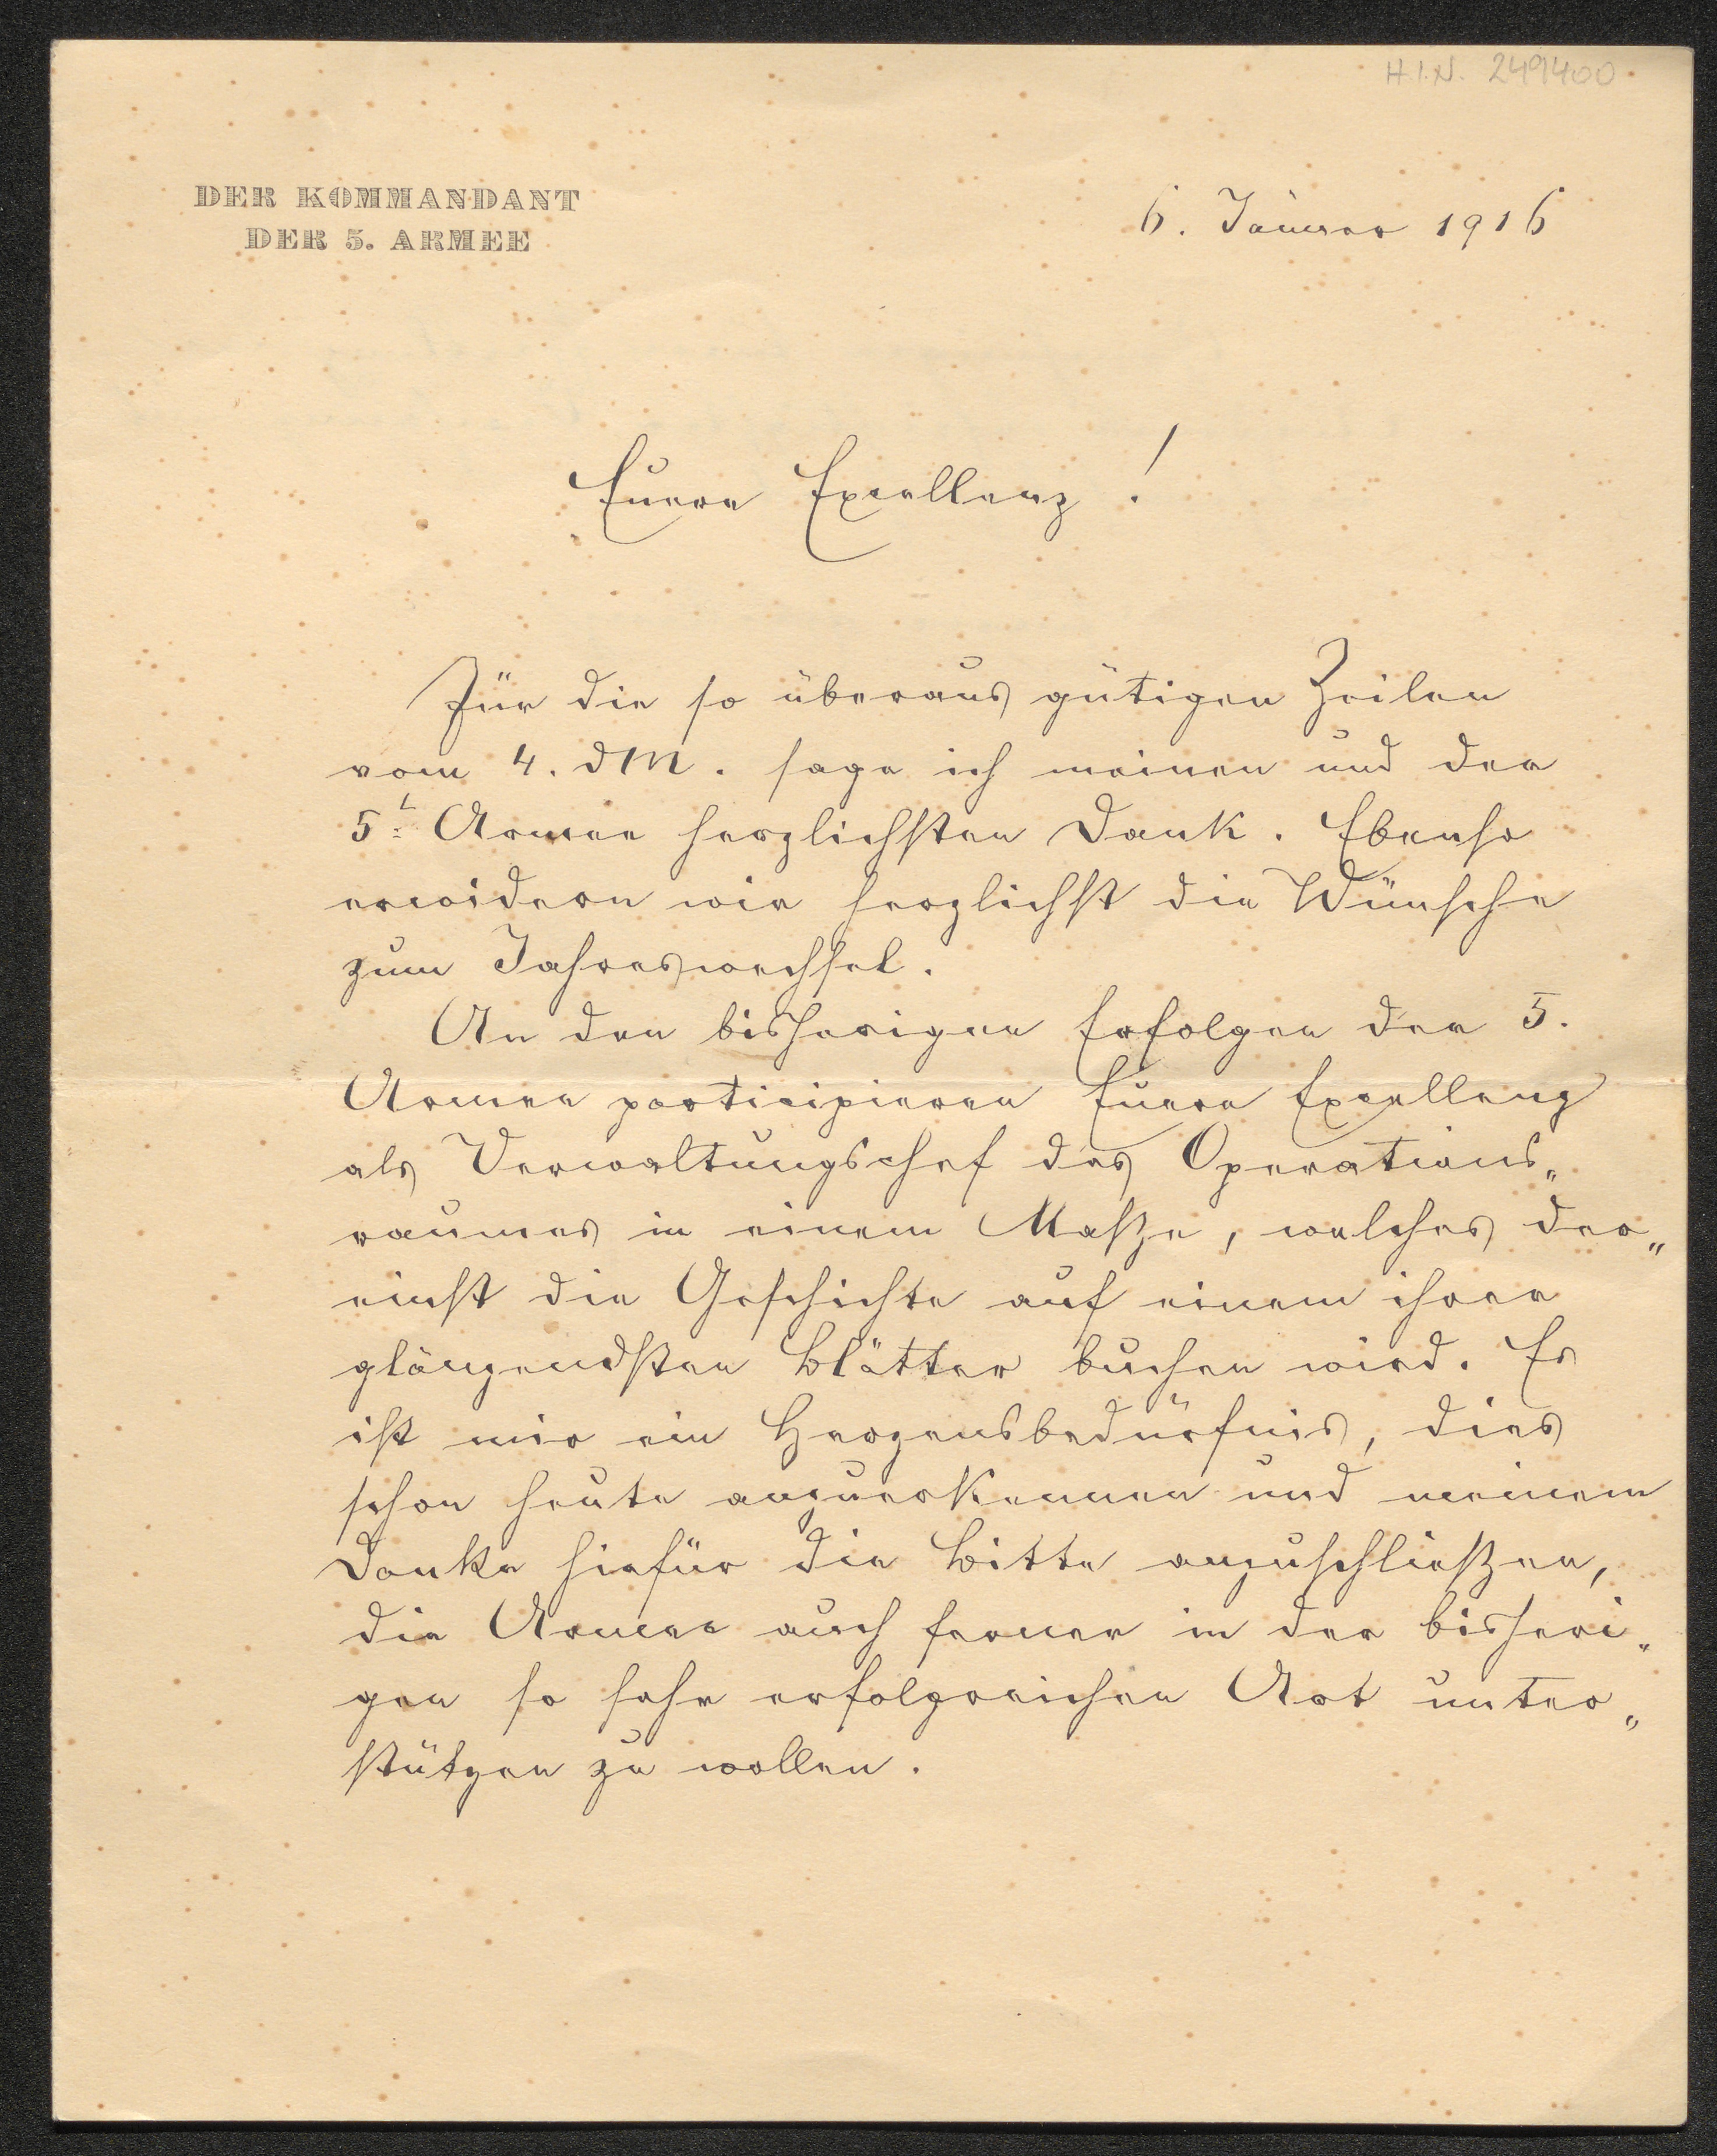 H.I.N. 249400
DER KOMMANDANT
DER 5. ARMEE
6. Jänner 1916
Euere Excellenz!
Für die so überaus gütigen Zeilen
vom 4. dM. sage ich meinen und der
5t. Armee herzlichsten Dank. Ebenso
erwidern wir herzlichst die Wünsche
zum Jahreswechsel.
An den bisherigen Erfolgen der 5.
Armee participieren Euere Excellenz
als Verwaltungschef des Operations„
raumes in einem Maße, welches der„
einst die Geschichte auf einem ihrer
glänzendsten Blätter buchen wird. Es
ist mir ein Herzensbedürfnis, dies
schon heute anzuerkennen und meinem
Danke hiefür die Bitte anzuschließen,
die Armee auch ferner in der bisheri„
gen so sehr erfolgreichen Art unter„
stützen zu wollen.